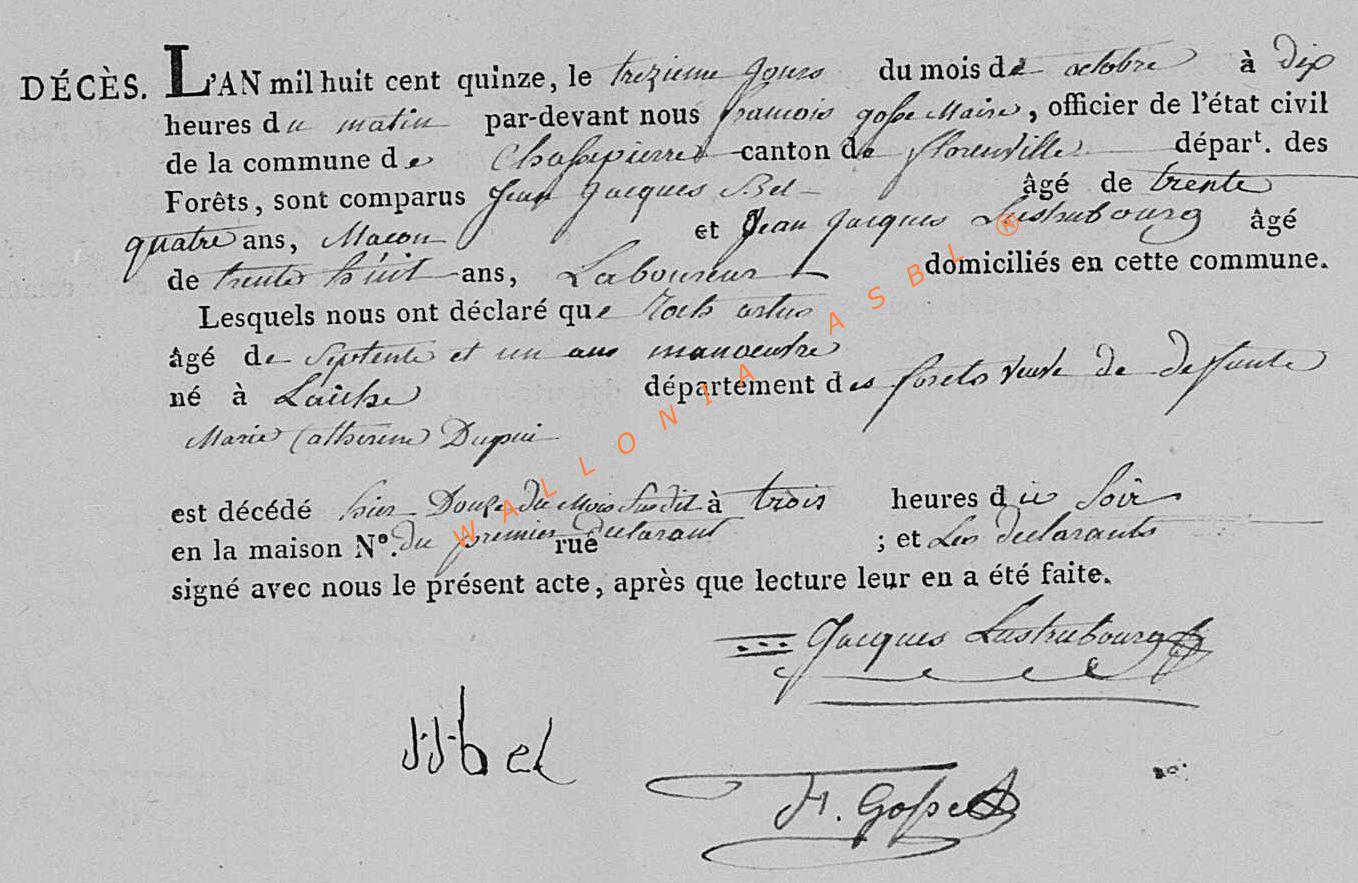 DÉCÈS. L'AN mil huit cent quinze, le trezieme jours du mois de octobre à dix
heures du matin par-devant nous francois gosse Maire, officier de l'état civil
de la commune de Chassepierre canton de florenville départ. des
Forêts, sont comparus Jean Jacques Bel âgé de trente
quatre ans, Macon et Jean Jacques Lustrubourg âgé
de trente huit ans, Laboureur domiciliés en cette commune.
Lesquels nous ont déclaré que
âgé de septente et un ans manoeuvre
né à Laiche département des forets veuf de deffunte
Marie Catherine Dupui
est décédé hier Douze du Mois susdit à trois heures du soir
en la maison N°. du premier declarant rue ; et Les declarants
signé avec nous le présent acte, après que lecture leur en a été faite.
Jacques Lustrubourg
j.j.bel
H. Gosse
WALLONIA ASBL ®